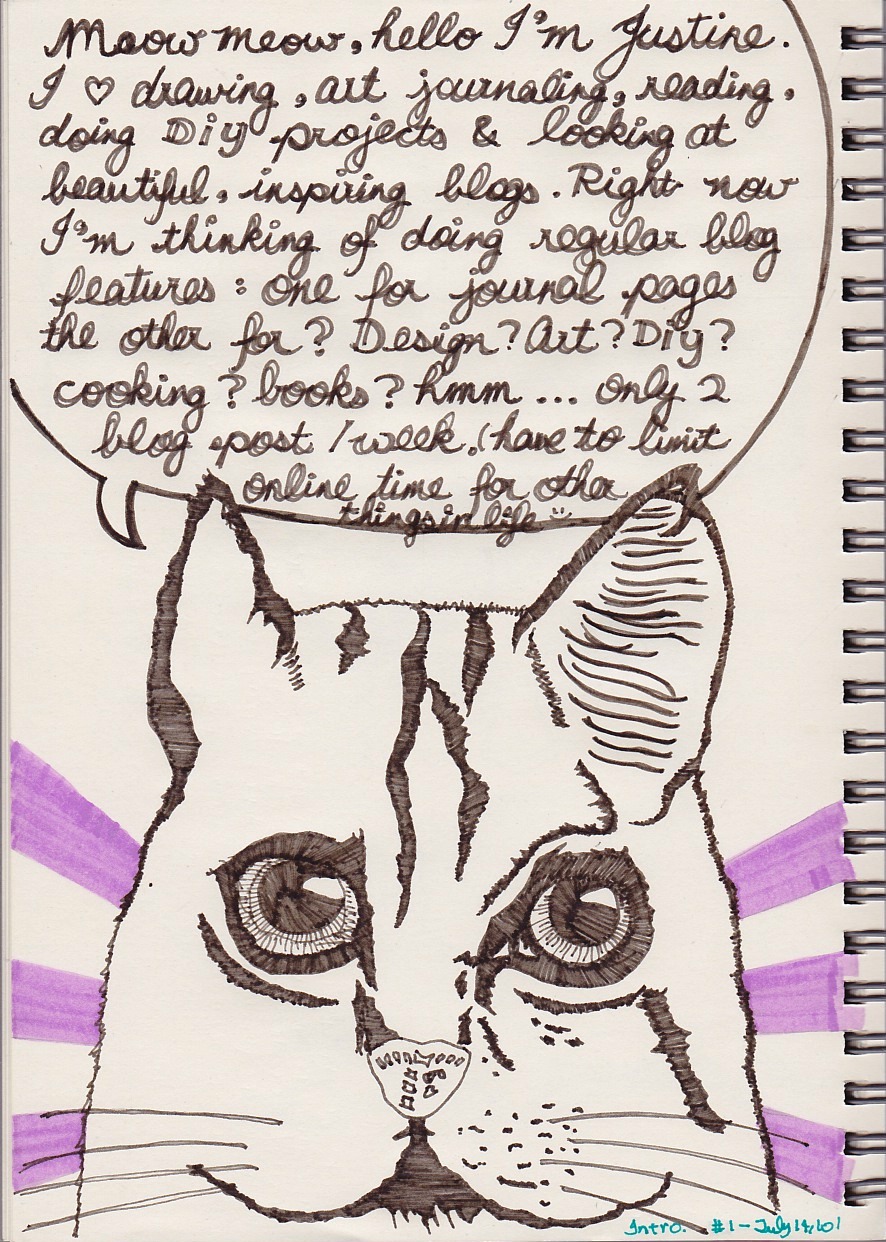 Meow meow, hello I'm Justine.
I ♡ drawing, art journaling, reading,
doing Diy projects & looking at
beautiful, inspiring blogs. Right now
I'm thinking of doing regular blog
features: one for journal pages
the other for? Design? Art? Diy?
cooking? books? hmm... only 2
blog post /week. (have to limit
online time for other
things in life
Intro. #1 - July 14,